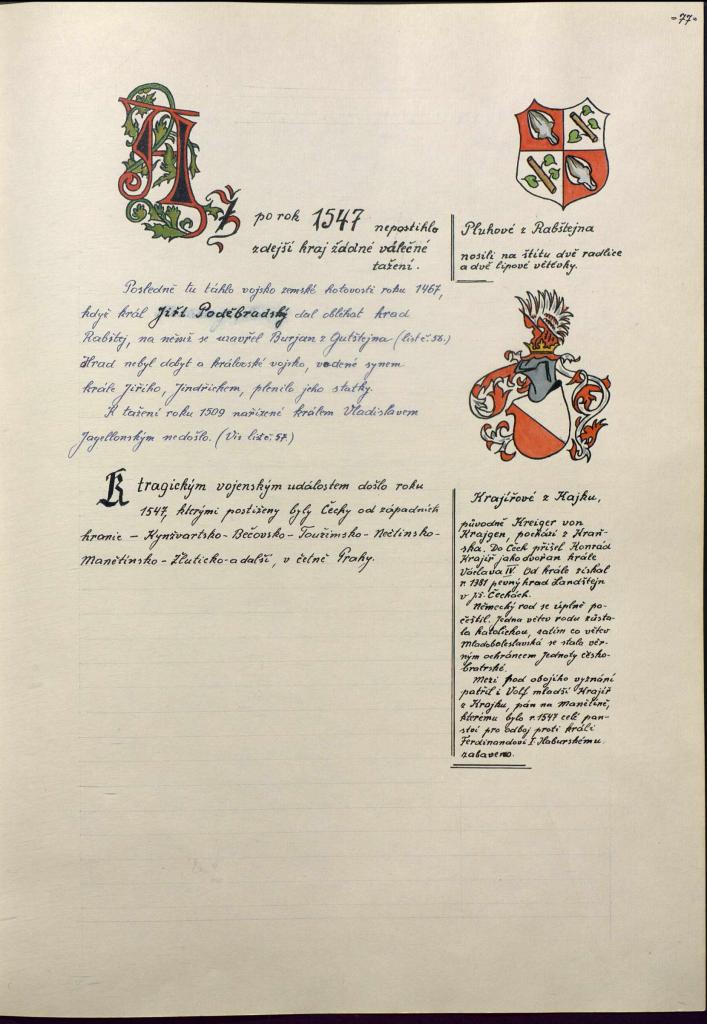 -77-
Až po rok 1547 nepostihlo
zdejší kraj žádné válečné
tažení.
Posledně tu táhlo vojsko zemské hotovosti roku 1467,
když král Jiří Poděbradský dal obléhat hrad
Rabštej, na němž se uzavřel Burjan z Gutštejna (list č. 56.)
Hrad nebyl dobyt a královské vojsko, vedené synem
krále Jiřího, Jindřichem, plenilo jeho statky.
K tažení roku 1509 nařízené králem Vladislavem
Jagellonským nedošlo. (Viz list č. 57)
K tragickým vojenským událostem došlo roku
1547, kterými postiženy byly Čechy od západních
hranic – Kynžvartsko - Bečovsko - Toužimsko - Nečtinsko-
Manětínsko - Žluticko - a další, v četně Prahy.
Pluhové z Rabštejna
nosili na štítu dvě radlice
a dvě lipové větévky.
Krajířové z Kajku,
původně Kreiger von
Krajgen, pochází z Kraň-
ska. Do Čech přišel Konrád
Krajíř jako dvořan krále
Václava IV. Od krále získal
r. 1381 pevný hrad Landštejn
v již. Čechách.
Německý rod se úplně po-
češtil. Jedna větev rodu zůsta-
la katolickou, zatím co větev
Mladoboleslavská se stala věr-
ným ochráncem Jednoty česko-
bratrské.
Mezi pod obojího vyznání
patřil i Volf mladší Krajíř
z Krajku, pán na Manětíně,
kterému bylo r. 1547 celé pan-
ství pro odboj proti králi
Ferdinandovi I. Haburskému
zabaveno.